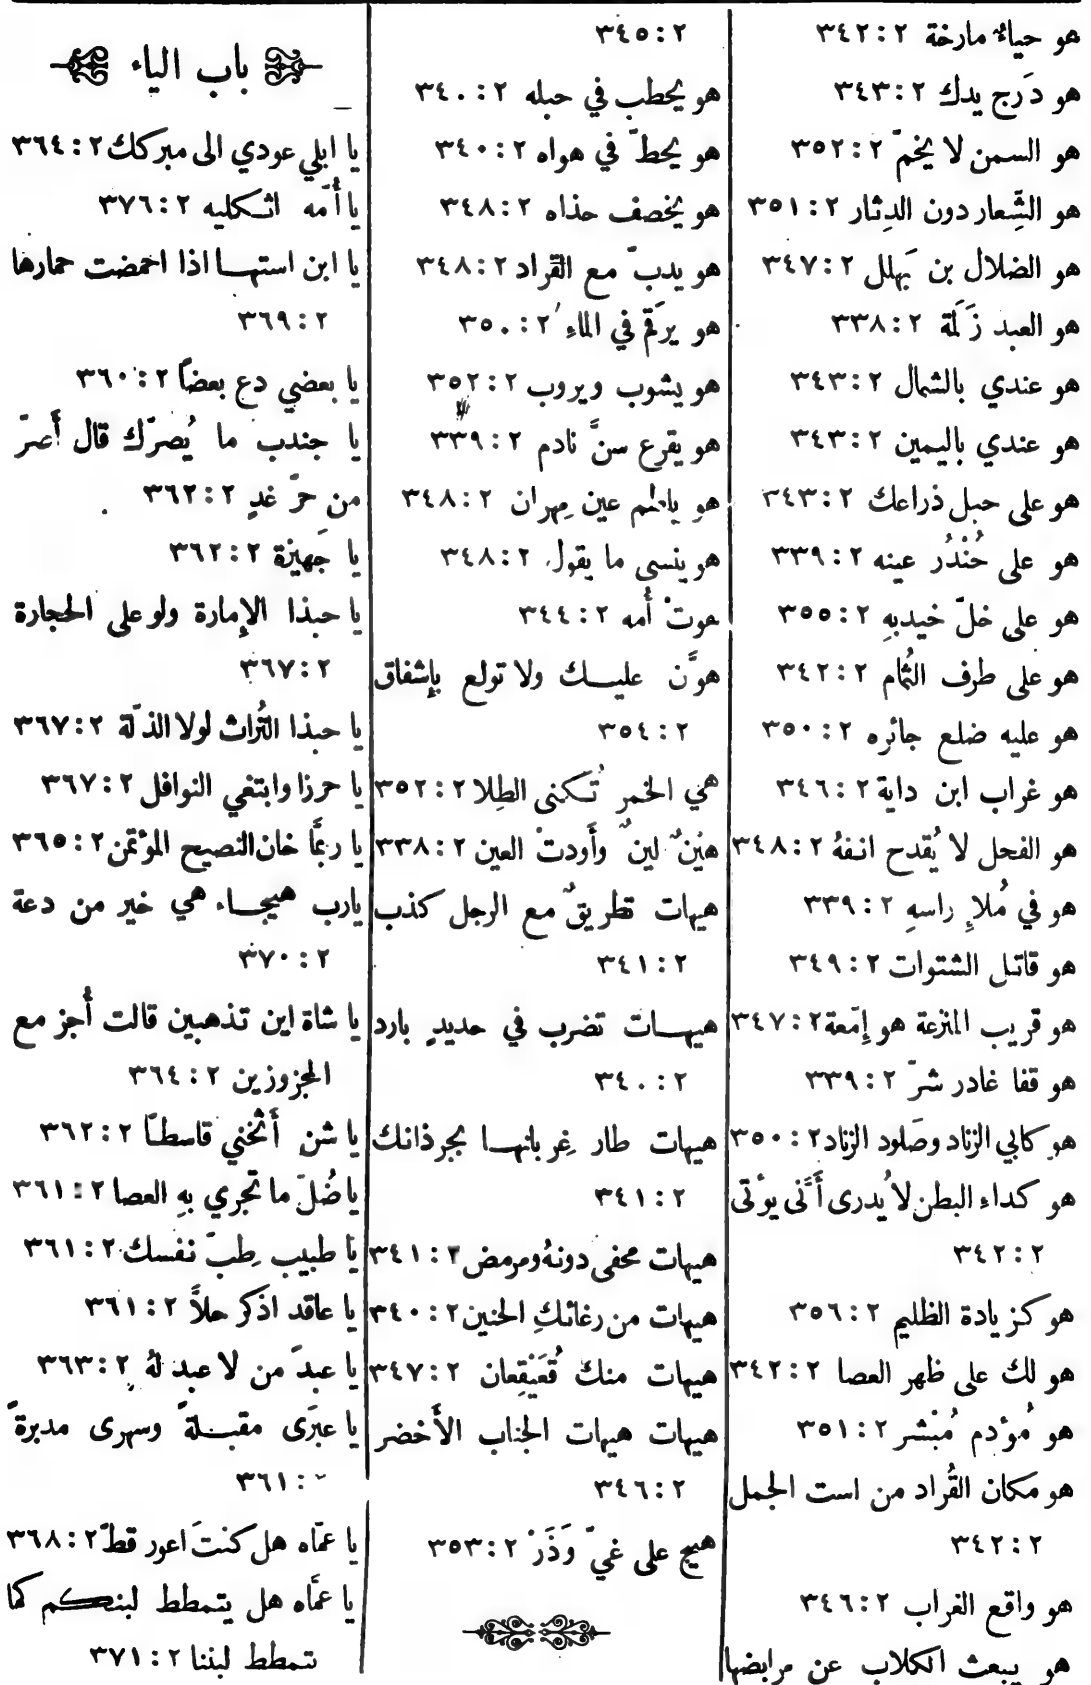 هو حياءُ مارخة ٢ : ٣٤٢
هو دَرج يدك ٢ : ٣٤٣
هو السمن لا يخمّ ٢ : ٣٥٢
هو الشِّعار دون الدِثار ٢ : ٣٥١
هو الضلال بن بَهلل ٢ : ٣٤٧
هو العبد زَلَمة ٢ : ٣٣٨
هو عندي بالشمال ٢ : ٣٤٣
هو عندي باليمين ٢ : ٣٤٣
هو على حبل ذراعك ٢ : ٣٤٣
هو على حُنْدُر عينه ٢ : ٣٣٩
هو على خلّ خيدبهِ ٢ : ٣٥٥
هو على طرف الثُمام ٢ : ٣٤٢
هو عليه ضلع جائره ٢ : ٣٥٠
هو غراب ابن داية ٢ : ٣٤٦
هو الفحل لا يُقدح انفهُ ٢ : ٣٤٨
هو في مُلاءِ راسهِ ٢ : ٣٣٩
هو قاتل الشتوات ٢ : ٣٤٩
هو قريب المنزعة هو إِمّعة ٢ : ٣٤٧
هو قفا غادر شرّ ٢ : ٣٣٩
هو كابي الزناد وصَلود الزناد ٢ : ٣٥٠
هو كداء البطن لا يُدرى أَنَّى يوْتى
٢ : ٣٤٢
هو كزيادة الظليم ٢ : ٣٥٦
هو لك على ظهر العصا ٢ : ٣٤٢
هو مُوْدم مُبْشر ٢ : ٣٥١
هو مكان القُراد من است الجمل
٢ : ٣٤٢
هو واقع الغراب ٢ : ٣٤٦
هو يبعث الكلاب عن مرابضها
٢ : ٣٤٥
هو يحطب في حبله ٢ : ٣٤٠
هو يحطّ في هواه ٢ : ٣٤٠
هو يخصف حذاه ٢ : ٣٤٨
هو يدبّ مع القُراد ٢ : ٣٤٨
هو يرقم في الماءِ ٢ : ٣٥٠
هو يشوب ويروب ٢ : ٣٥٢
هو يقرع سنَّ نادم ٢ : ٣٣٩
هو يلطم عين مِهران ٢ : ٣٤٨
هو ينسى ما يقول ٢ : ٣٤٨
هوتْ أُمه ٢ : ٣٤٤
هوَّن عليك ولا تولع بإِشفاق
٢ : ٣٥٤
هي الخمر تُكنى الطِلا ٢ : ٣٥٢
هيْنٌ لينٌ وأَودتْ العين ٢ : ٣٣٨
هيهات تطريقٌ مع الرجل كذب
٢ : ٣٤١
هيهات تضرب في حديدٍ بارد
٢ : ٣٤٠
هيهات طار غِربانها بجرذانك
٢ : ٣٤١
هيهات محفى دونهُ ومرمض ٢ : ٣٤١
هيهات من رغائكِ الحنين ٢ : ٣٤٠
هيهات منك قُعَيْقِعان ٢ : ٣٤٧
هيهات هيهات الجناب الأَخضر
٢ : ٣٤٦
هيج على غيّ وَذَرْ ٢ : ٣٥٣
باب الياء
يا ابلي عودي الى مبركك ٢ : ٣٦٤
يا أُمّه اثكليه ٢ : ٣٧٦
يا ابن استها اذا احمضت حمارها
٢ : ٣٦٩
يا بعضي دع بعضاً ٢ : ٣٦٠
يا جندب ما يُصرّك قال أَصرّ
من حرّ غدٍ ٢ : ٣٦٢
يا جَهيزة ٢ : ٣٦٢
يا حبذا الإِمارة ولو على الحجارة
٢ : ٣٦٧
يا حبذا التُراث لولا الذلّة ٢ : ٣٦٧
يا حرزا وابتغي النوافل ٢ : ٣٦٧
يا ربَّما خان النصيح الموْتمن ٢ : ٣٦٥
يارب هيجاء هي خير من دعة
٢ : ٣٧٠
يا شاة اين تذهبين قالت أَجز مع
المجزوزين ٢ : ٣٦٤
يا شن أَثخني قاسطاً ٢ : ٣٦٢
يا ضُلّ ما تجري بهِ العصا ٢ : ٣٦١
يا طبيب طِبّ نفسك ٢ : ٣٦١
يا عاقد اذكر حلاًّ ٢ : ٣٦١
يا عبدَ من لا عبد لهُ ٢ : ٣٦٣
يا عبرَى مقبلةً وسهرى مدبرةً
: ٣٦١
يا عمّاه هل كنتَ اعور قطّ ٢ : ٣٦٨
يا عمَّاه هل يتمطط لبنكم كما
تتمطط لبننا ٢ : ٣٧١